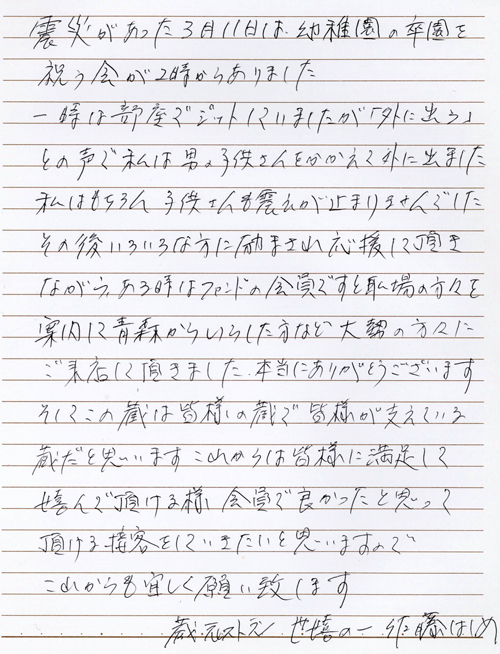 震災があった3月11日は、幼稚園の卒園を
祝う会が2時からありました
一時は部屋でジットしていましたが「外に出ろ」
との声で私は男の子供さんをかかえて外に出ました
私はもちろん子供さんも震えが止まりませんでした
その後いろいろな方に励まされ応援して頂き
ながら、ある時はファンドの会員ですと職場の方々を
案内して青森からいらした方など大勢の方々に
ご来店して頂きました、本当にありがとうございます
そしてこの蔵は皆様の蔵で皆様が支えている
蔵だと思います これからは皆様に満足して
嬉んで頂ける様、会員で良かったと思って
頂ける接客をしていきたいと思いますので
これからも宜しく願い致します
蔵元レストラン 世嬉の一 佐藤はじめ